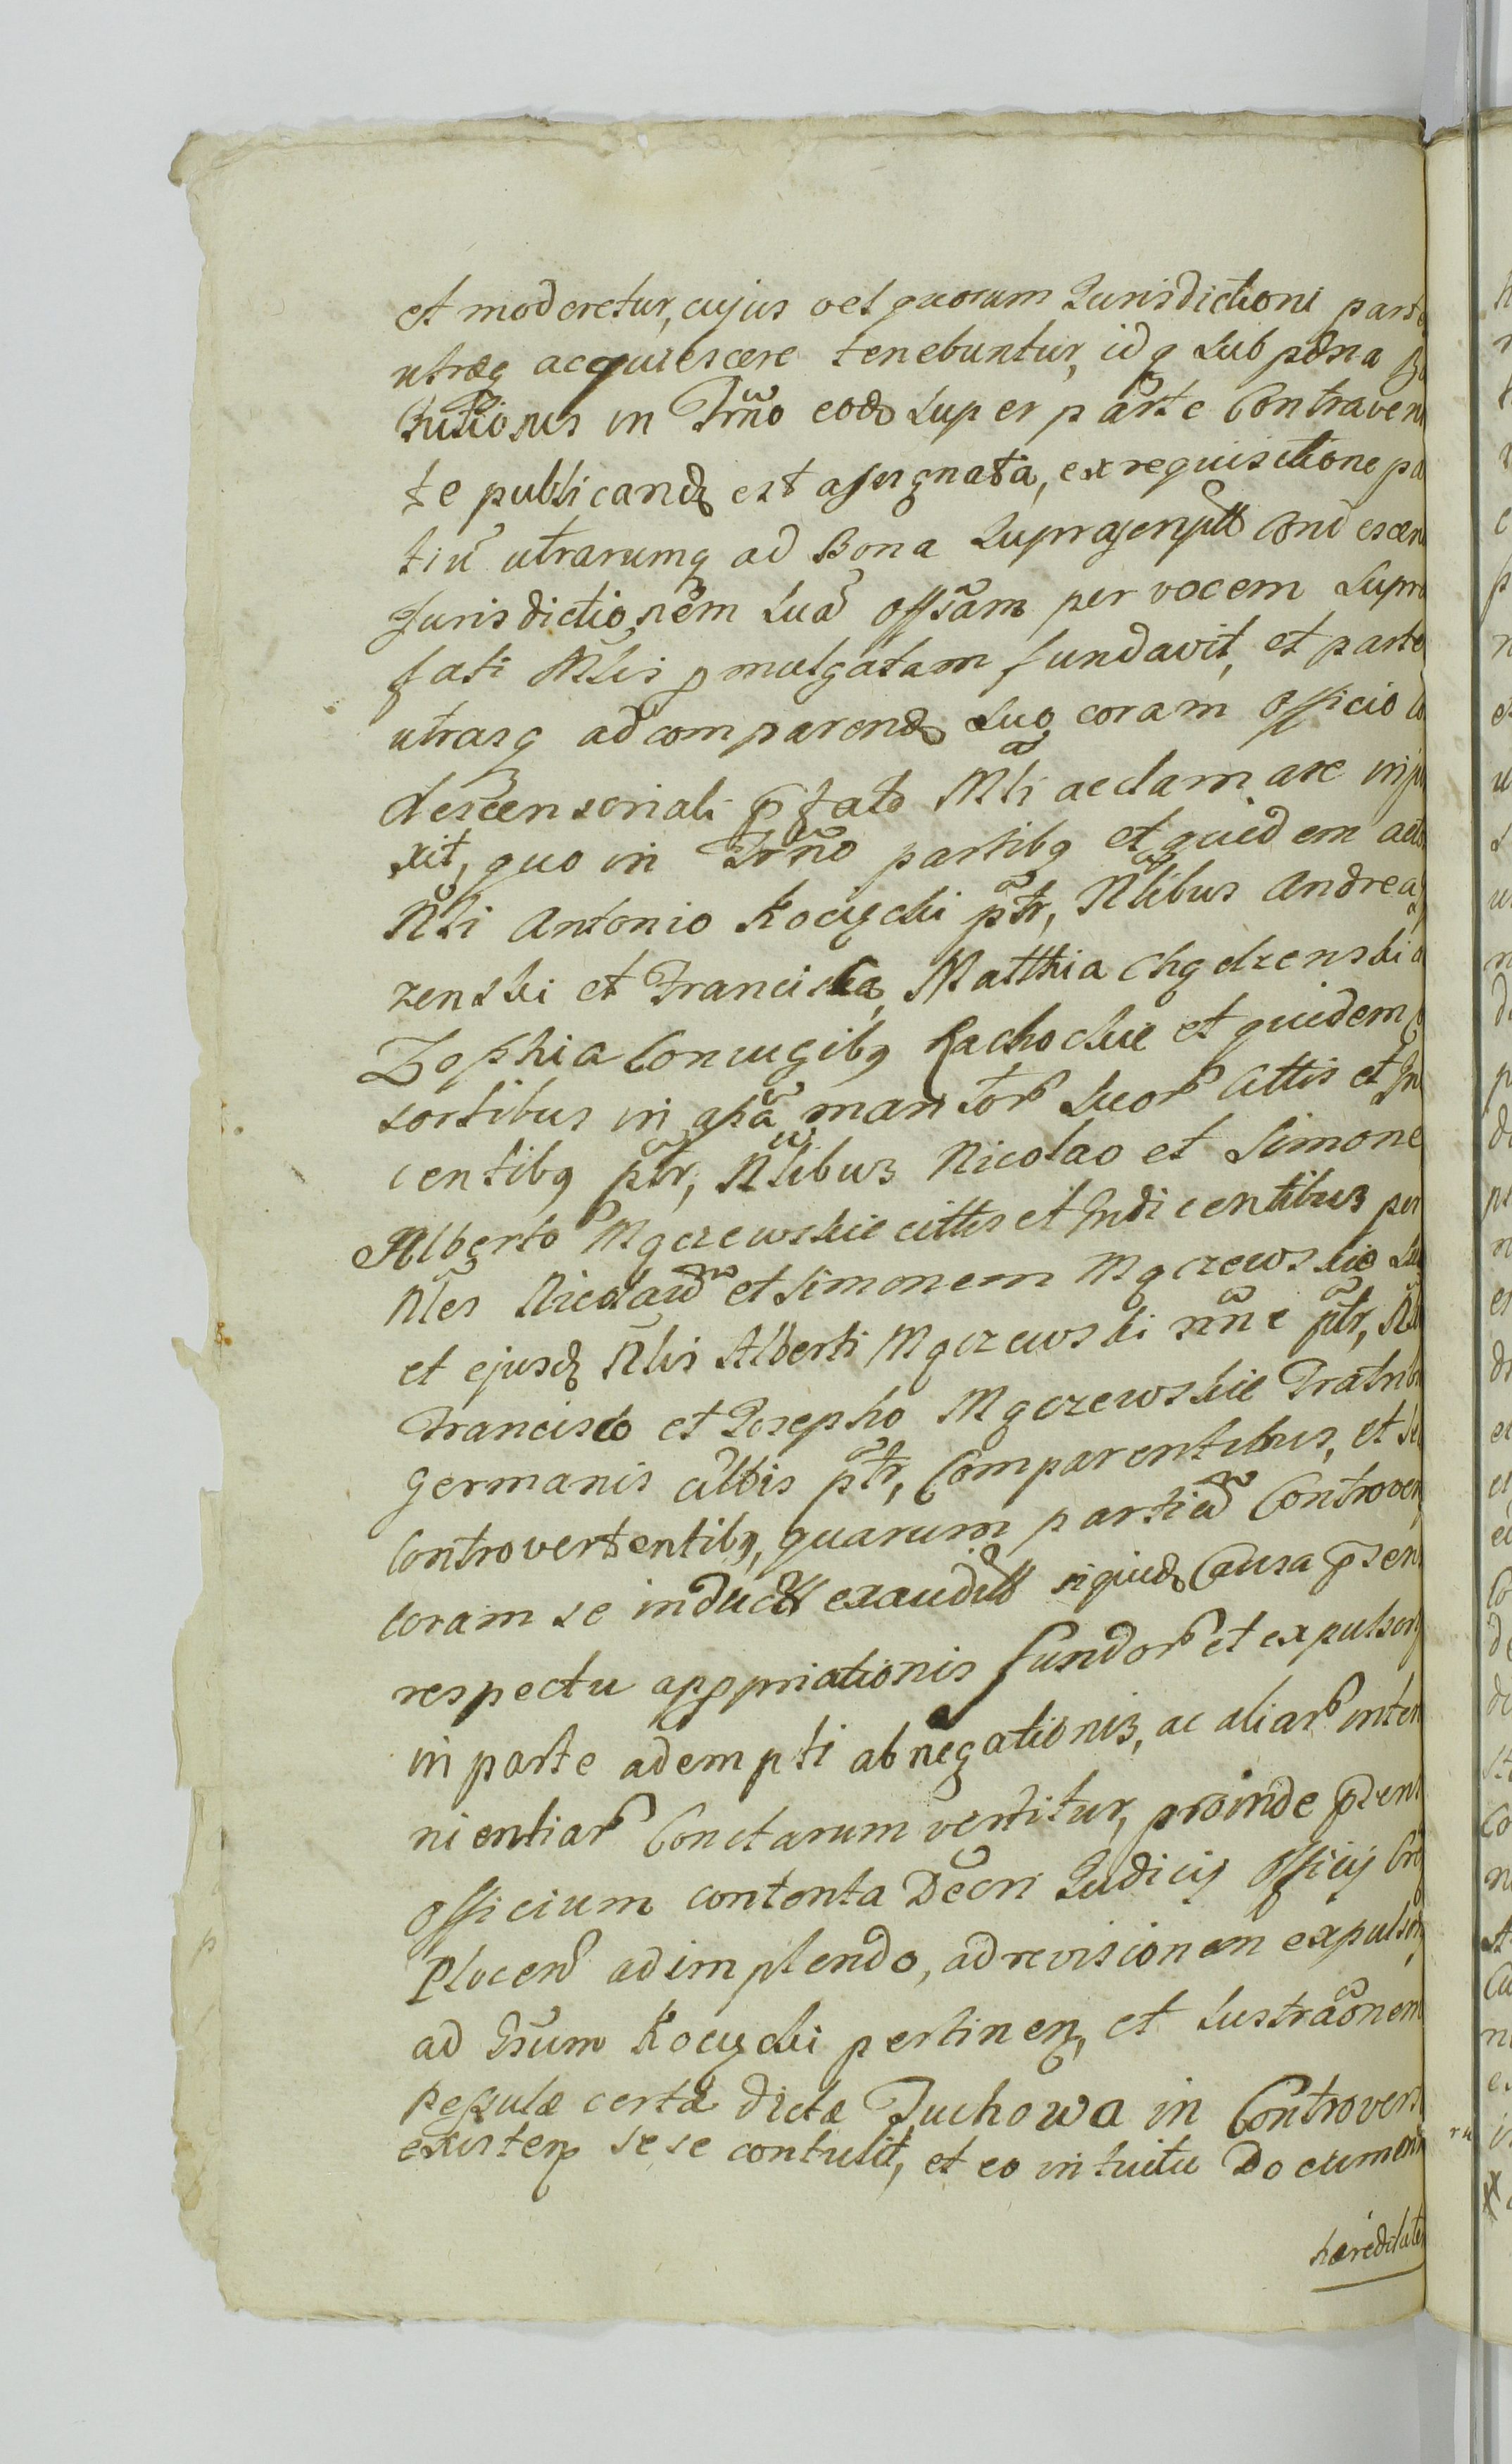 et moderetur, cujus vel quorum Jurisdictioni parte
utræq acquiescere tenebuntur, idq sub pœna
in Trño eodō super parte Contraven
te publicandę est assignata, ex requisitione pa
tiū utrarumq ad Bona Suprascriptt Condescen
Jurisdictionem suā offsam per vocem supra
fati Mlis pmulgatam fundavit, et parte
utrasq ad comparendō suo coram Officio Co
descensoriali pfato Mli acclamare inju
xit, quo in Trño partibq et quidem acto
Nli Antonio Kocięcki ptr, Nlibus Andrea
zenski et Francisca, Matthia Chądzenski a
Zophia Conjugibq Rachockie et quidem
sortibus in assã maritor suor Cittis et In
centibq ptr, Nlibus Nicolao et Simone
Alberto Mączewskie cittis et Indicentibus per
Nles Nicolaū et Simonem Mączewskie su
et ejusdę Nlis Alberti Mączewski nñe ptr, Nli
Francisco et Josepho Mączewskie Fratrib
germanis cittis ptr, Comparentibus, et se
Controvertentibq, quarum partiū Controver
coram se induct exauditt siquidę Causa psen
respectu appriationis fundor et expulson
in parte adempti abnegationis, ac aliar inten
nientiar Conctarum vertitur, proinde psens
officium contenta Decri Judicij Officij Cro
Plocen adimplendo, ad revisionem expulson
ad Gsum Kocięcki pertinen, et lustrãonem
Regulæ certæ dictæ Juchowa in Controvers
existen sese contulit, et eo intuitu Documen
hæreditates